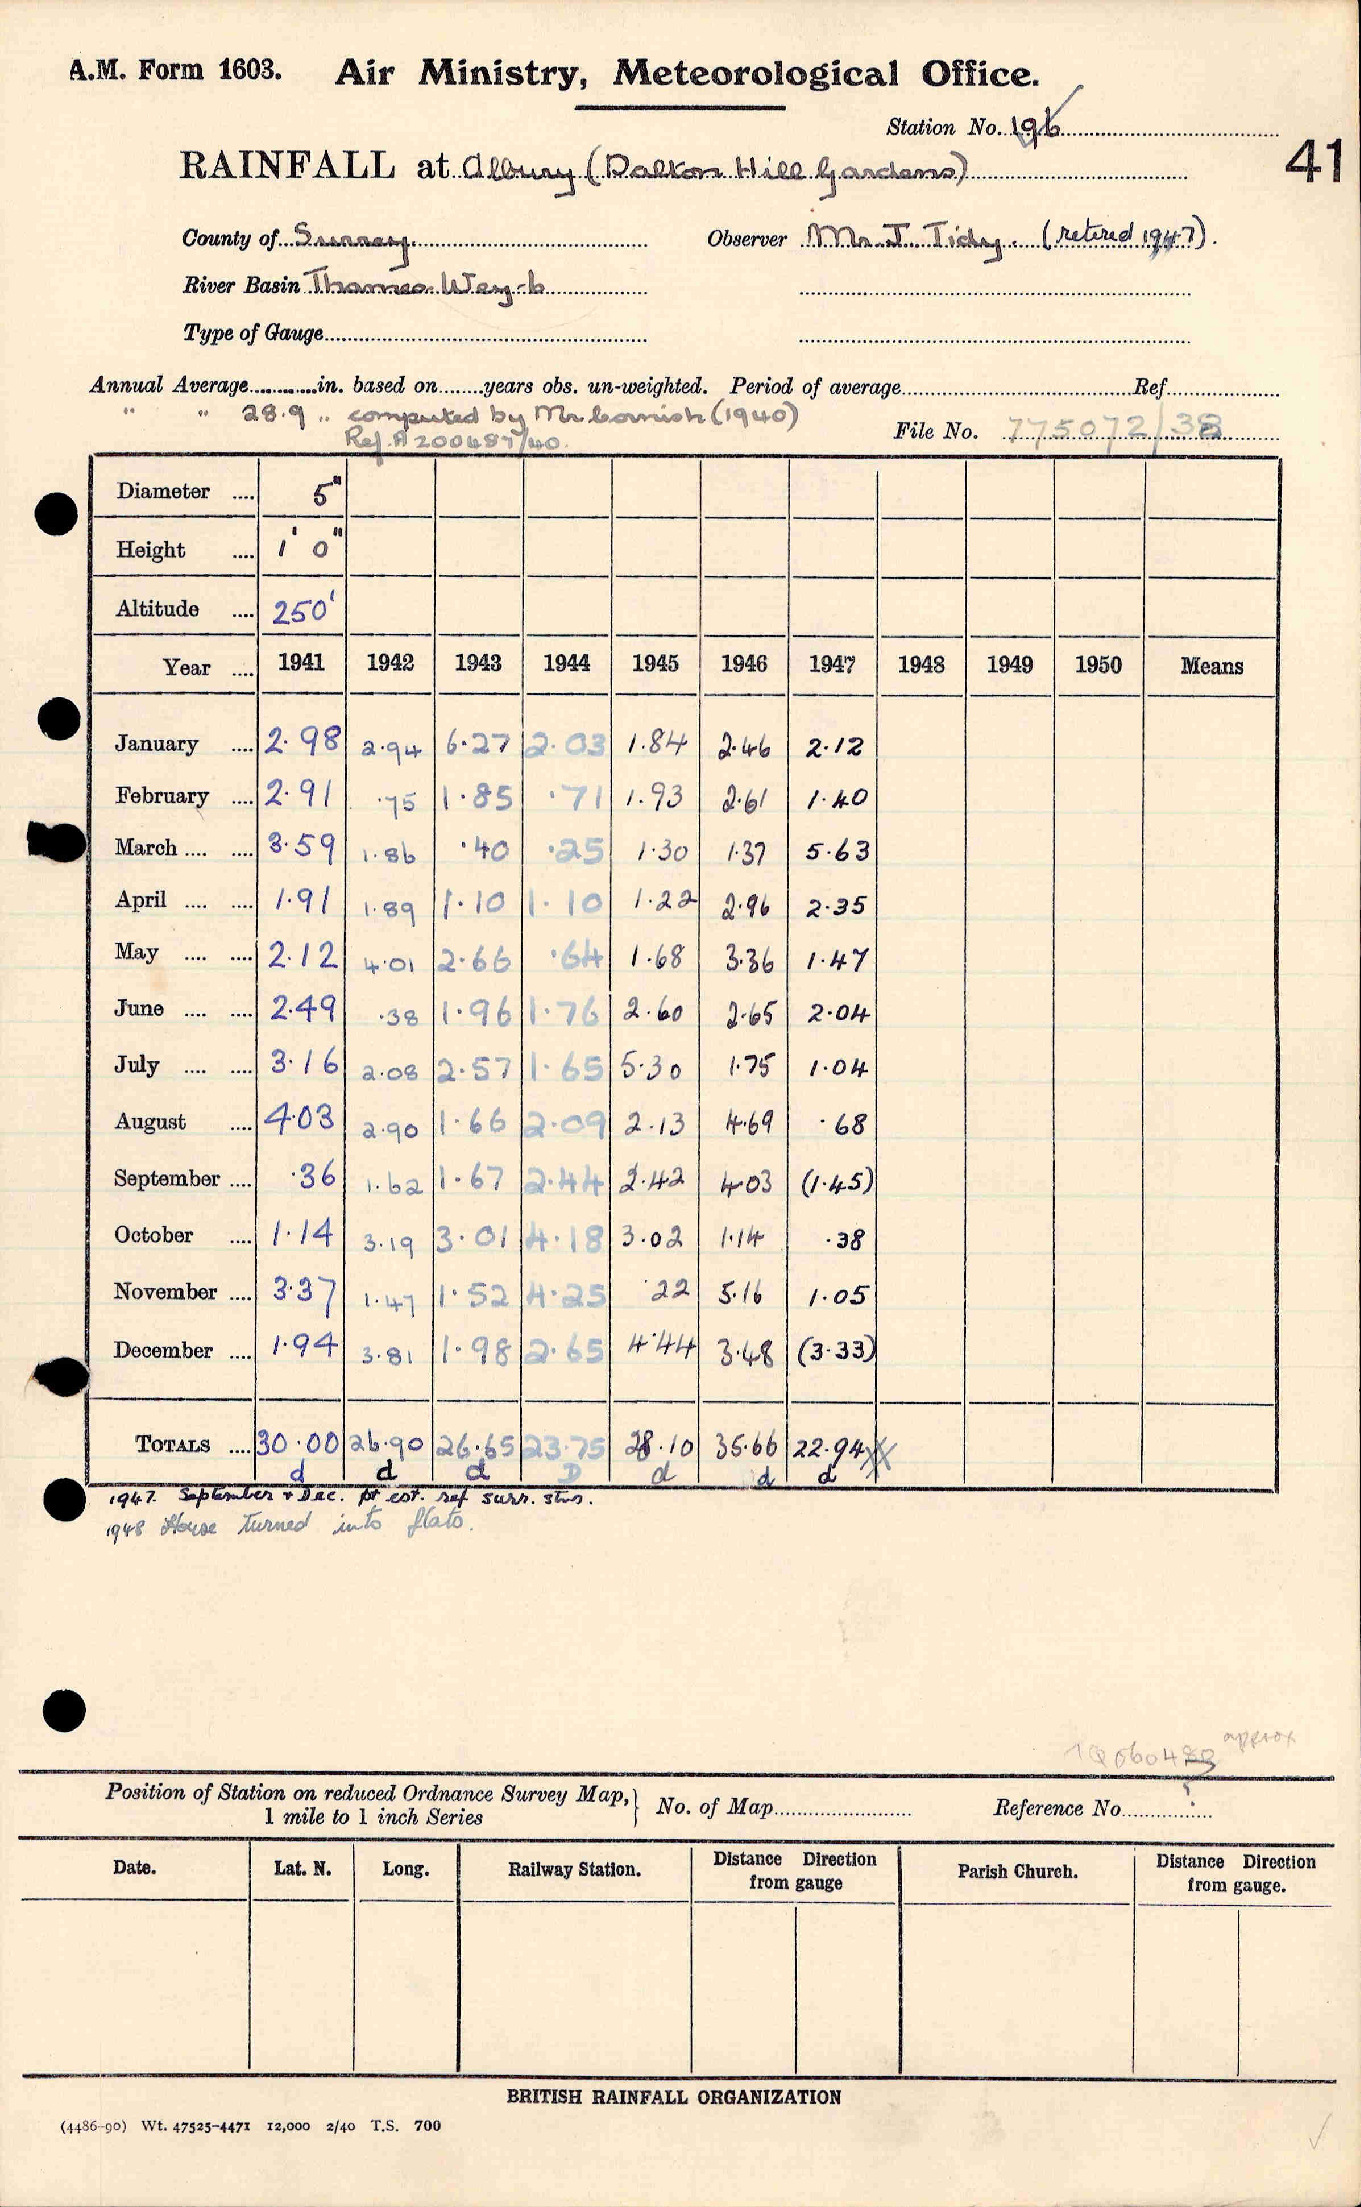 A.M. Form 1603. Air Ministry, Meteorological Office.
Station No. 196
41
RAINFALL at Albury (Dalton Hill Gardens)
County of Surrey. Observer Mr J. Tidy. (retired 1947).
River Basin Thames-Wey-b
Type of Gauge
Annual Average............in. based on.......years obs. un-weighted. Period of average..........Ref..........
" " 28.9 " computed by Mr Cornish (1940)
Ref. A 200487/40. File No. 775072/38
Diameter .... 5"
Height .... 1' 0"
Altitude .... 250'
Year .... 1941 1942 1943 1944 1945 1946 1947 1948 1949 1950 Means
January .... 2.98 2.94 6.27 2.03 1.84 2.46 2.12
February .... 2.91 .75 1.85 .71 1.93 2.61 1.40
March .... .... 3.59 1.86 .40 .25 1.30 1.37 5.63
April .... .... 1.91 1.89 1.10 1.10 1.22 2.96 2.35
May .... .... 2.12 4.01 2.66 .64 1.68 3.36 1.47
June .... .... 2.49 .38 1.96 1.76 2.60 2.65 2.04
July .... .... 3.16 2.08 2.57 1.65 5.30 1.75 1.04
August .... 4.03 2.90 1.66 2.09 2.13 4.69 .68
September .... .36 1.62 1.67 2.44 2.42 4.03 (1.45)
October .... 1.14 3.19 3.01 4.18 3.02 1.14 .38
November .... 3.37 1.47 1.52 4.25 .22 5.16 1.05
December .... 1.94 3.81 1.98 2.65 4.44 3.48 (3.33)
TOTALS .... 30.00 26.90 26.65 23.75 28.10 35.66 22.94
d d d D d d d
1947. September & Dec. pt est. ref surr. stns.
1948 House turned into flats.
approx
Position of Station on reduced Ordnance Survey Map,
1 mile to 1 inch Series
No. of Map.......... Reference No..........
?
Date. Lat. N. Long. Railway Station. Distance Direction from gauge Parish Church. Distance Direction from gauge.
BRITISH RAINFALL ORGANIZATION
(4486-90) Wt. 47525-4471 12,000 2/40 T.S. 700